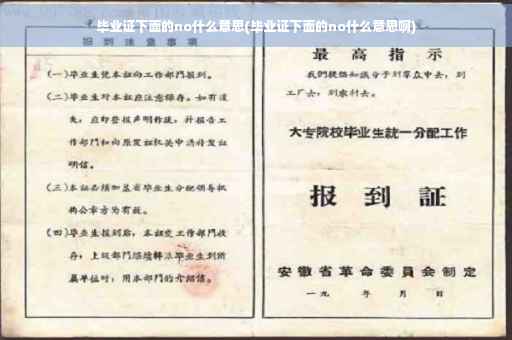 毕业证下面的no什么意思(毕业证下面的no什么意思啊)
报到注意事项
(一)毕业生凭本证向工作部门报到。
(二)毕业生对本证应注意保存。如有遗
失,应即登报声明作废,并报告工
作部门和向原发证机关申请补发证
明信。
(三)本证必须加盖省毕业生分配领导机
构公章方为有效。
(四)毕业生报到后,本证交工作部门收
存,上级部门继续转派毕业生到所
属单位时,用本部门的介绍信。
最高指示
我们提倡知识分子到群众中去,到
工厂去,到农村去。
大专院校毕业生統一分配工作
报到証
安徽省革命委員会制定
一九 年 月 日